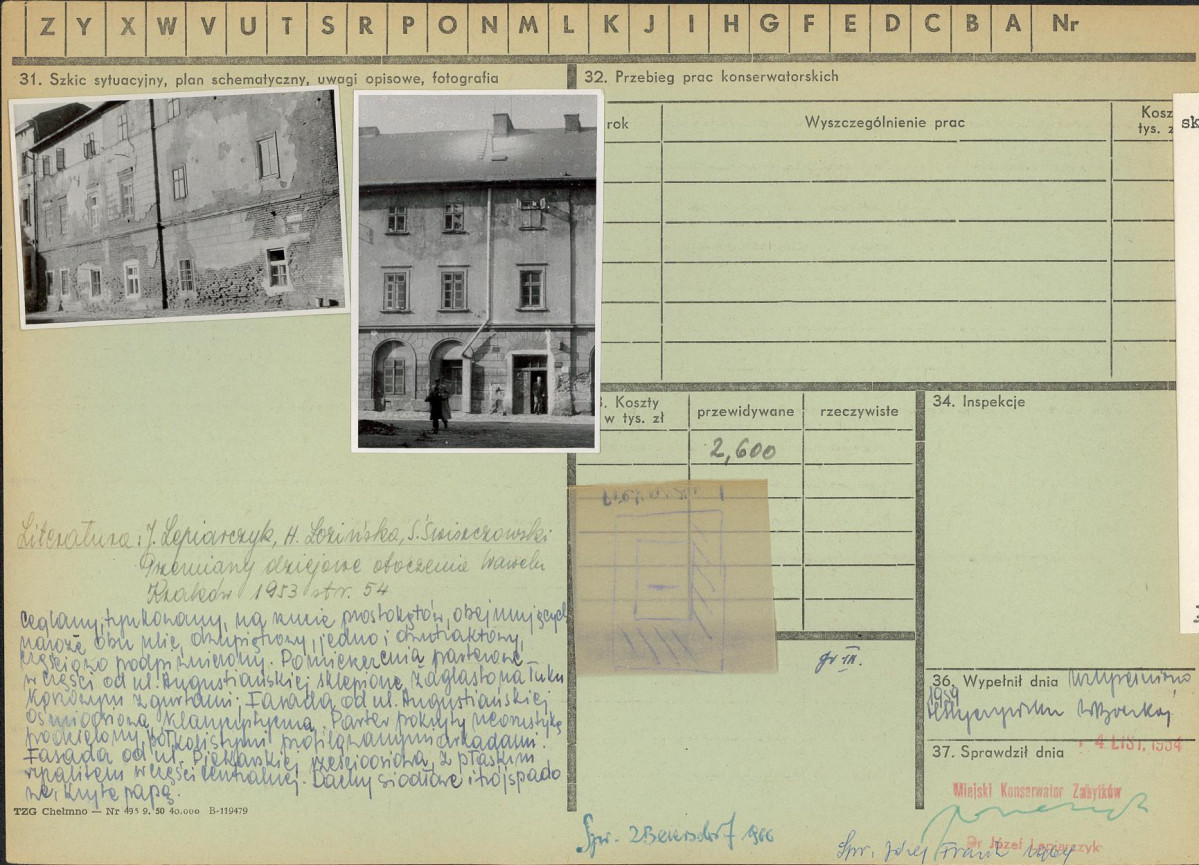 Z Y X W V U T S R P O N M L K J I H G F E D C B A Nr
31. Szkic sytuacyjny, plan schematyczny, uwagi opisowe, fotografia
32. Przebieg prac konserwatorskich
rok
Wyszczególnienie prac
Kosz
tys. z
sk
Koszty
w tys. zł
przewidywane
rzeczywiste
2,600
34. Inspekcje
Literatura: J. Lepiarczyk, H. Łozińska, S. Świszczowski
Przemiany dziejowe otoczenia Wawelu
Kraków 1953 str. 54
Ceglany, tynkowany, na rzucie prostokątów, obejmujących
naroże obu ulic, dwupiętrowy, jedno i dwutraktowy,
częściowo podpiwniczony. Pomieszczenia parterowe
w części od ul. Augustiańskiej sklepione żaglasto na łuku
koszowym z gurtami; Fasada od ul. Augustiańskiej
ośmioosiowa, klasycystyczna. Parter pokryty neorustyką
podzielony półkolistymi profilowanymi arkadami.
Fasada od ul. Piekarskiej sześcioosiowa, z płaskim
ryzalitem w części centralnej. Dachy siodłowe i trójspado
we, kryte papą.
gr III.
36. Wypełnił dnia
1959
37. Sprawdził dnia
4 LIST. 1954
Miejski Konserwator Zabytków
Dr Józef Lepiarczyk
TZG Chełmno — Nr 495 9. 50 40.000 B-119479
Spr. Z Beiersdorf 1966
Spr. Józef Frazik 1964